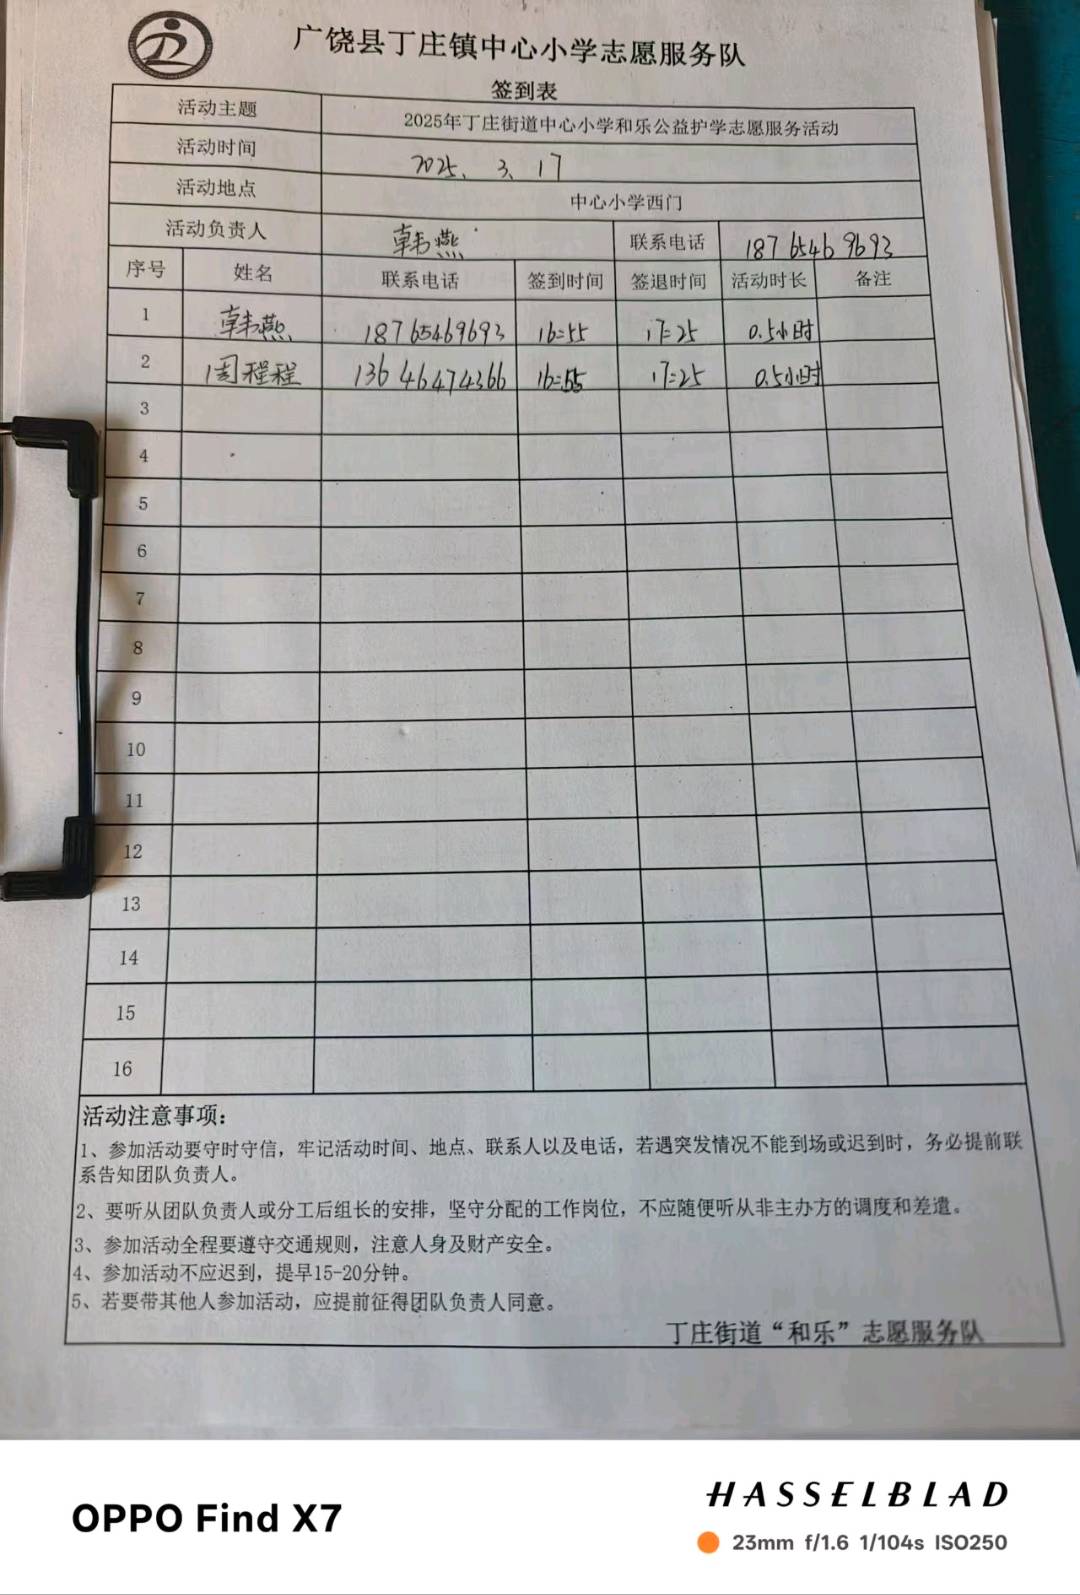 广饶县丁庄镇中心小学志愿服务队
签到表
活动主题 2025年丁庄街道中心小学和乐公益护学志愿服务活动
活动时间 2025、3、17
活动地点 中心小学西门
活动负责人 韩燕 联系电话 18765469693
序号 姓名 联系电话 签到时间 签退时间 活动时长 备注
1 韩燕 18765469693 16:55 17:25 0.5小时
2 周程程 13646474366 16:55 17:25 0.5小时
3
4
5
6
7
8
9
10
11
12
13
14
15
16
活动注意事项：
1、参加活动要守时守信，牢记活动时间、地点、联系人以及电话，若遇突发情况不能到场或迟到时，务必提前联
系告知团队负责人。
2、要听从团队负责人或分工后组长的安排，坚守分配的工作岗位，不应随便听从非主办方的调度和差遣。
3、参加活动全程要遵守交通规则，注意人身及财产安全。
4、参加活动不应迟到，提早15-20分钟。
5、若要带其他人参加活动，应提前征得团队负责人同意。
丁庄街道“和乐”志愿服务队
OPPO Find X7
HASSELBLAD
23mm f/1.6 1/104s ISO250